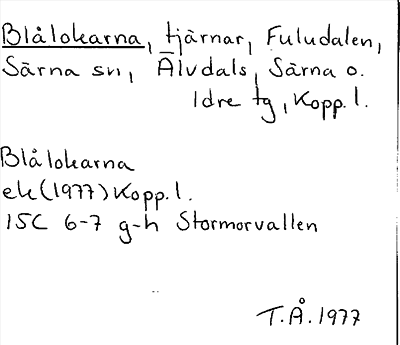 Blålokarna, tjärnar, Fuludalen,
Särna sn, Älvdals, Särna o.
Idre tg, Kopp. l.
Blålokarna
ek (1977) Kopp. l.
15C 6-7 g-h Stormorvallen
T.Å. 1977